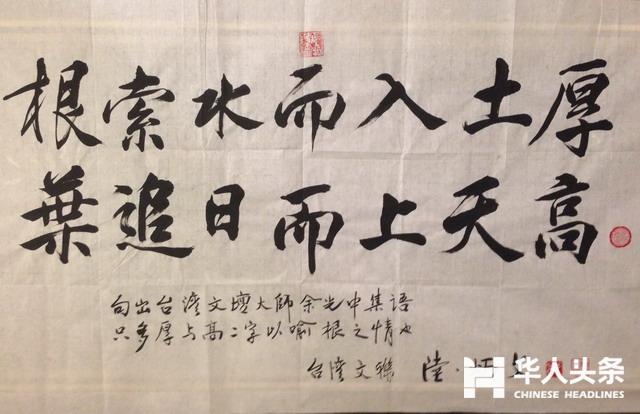 根索水而入土厚
葉追日而上天高
句出台灣文壇大師余光中集语
只多厚与高二字以喻根之情也
台灣文聯 陸
华人头条
CHINESE HEADLINES